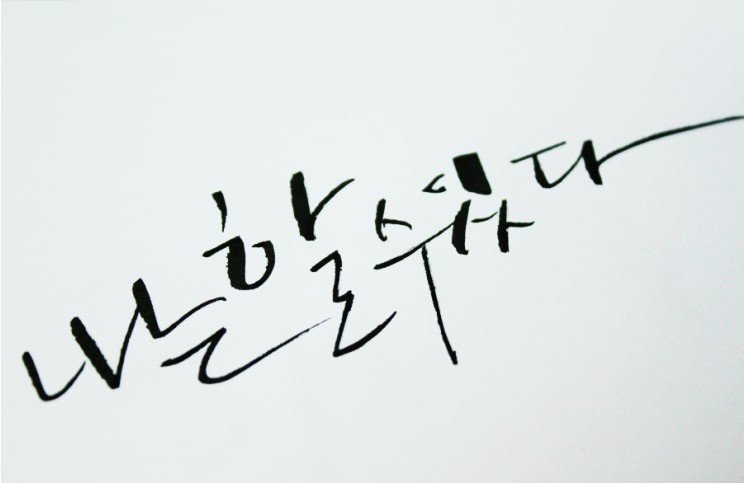 나는 할 수 있다